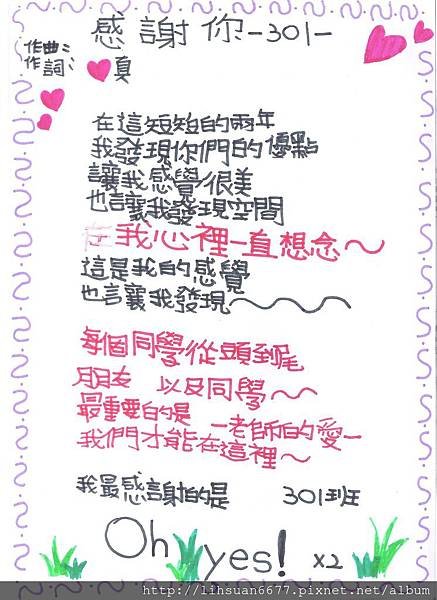 感謝你-301-
作曲：
作詞：
真
在這短短的兩年
我發現你們的優點
讓我感覺很美
也讓我發現空間
在我心裡一直想念～
這是我的感覺
也讓我發現～～～～
每個同學從頭到尾
朋友 以及同學～～
最重要的是 一老師的愛一
我們才能在這裡～
我最感謝的是 301班
Oh yes! x2
http://lihsuan6677.pixnet.net/album